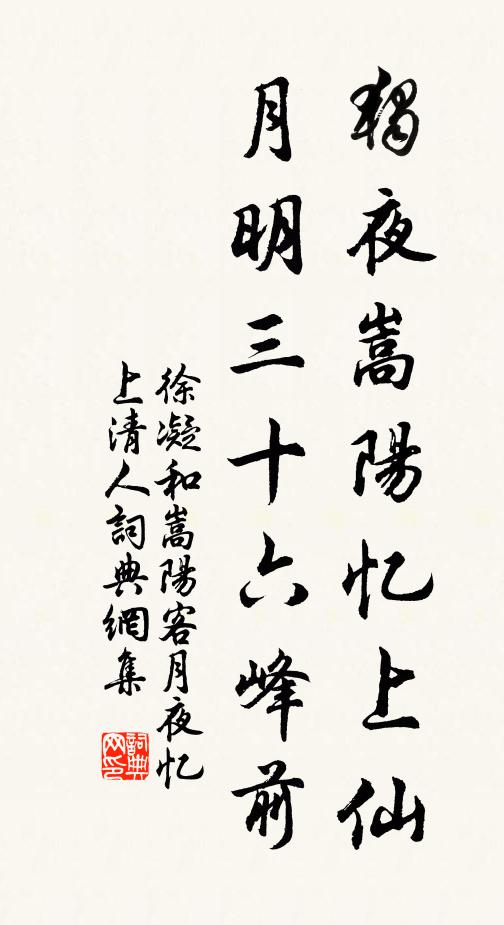 獨夜嵩陽忆上仙
月明三十六峰前
徐凝和嵩陽客月夜忆
上清人詞典網集
詞典网印